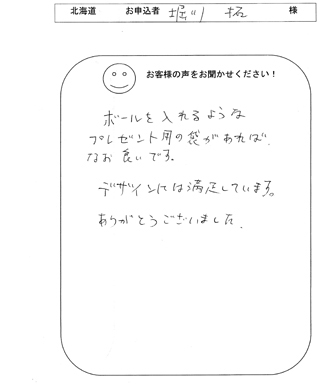 北海道 お申込者 堀川 拓 様
お客様の声をお聞かせください!
ボールを入れるような
プレゼント用の袋があれば、
なお良いです。
デザインには満足しています。
ありがとうございました。